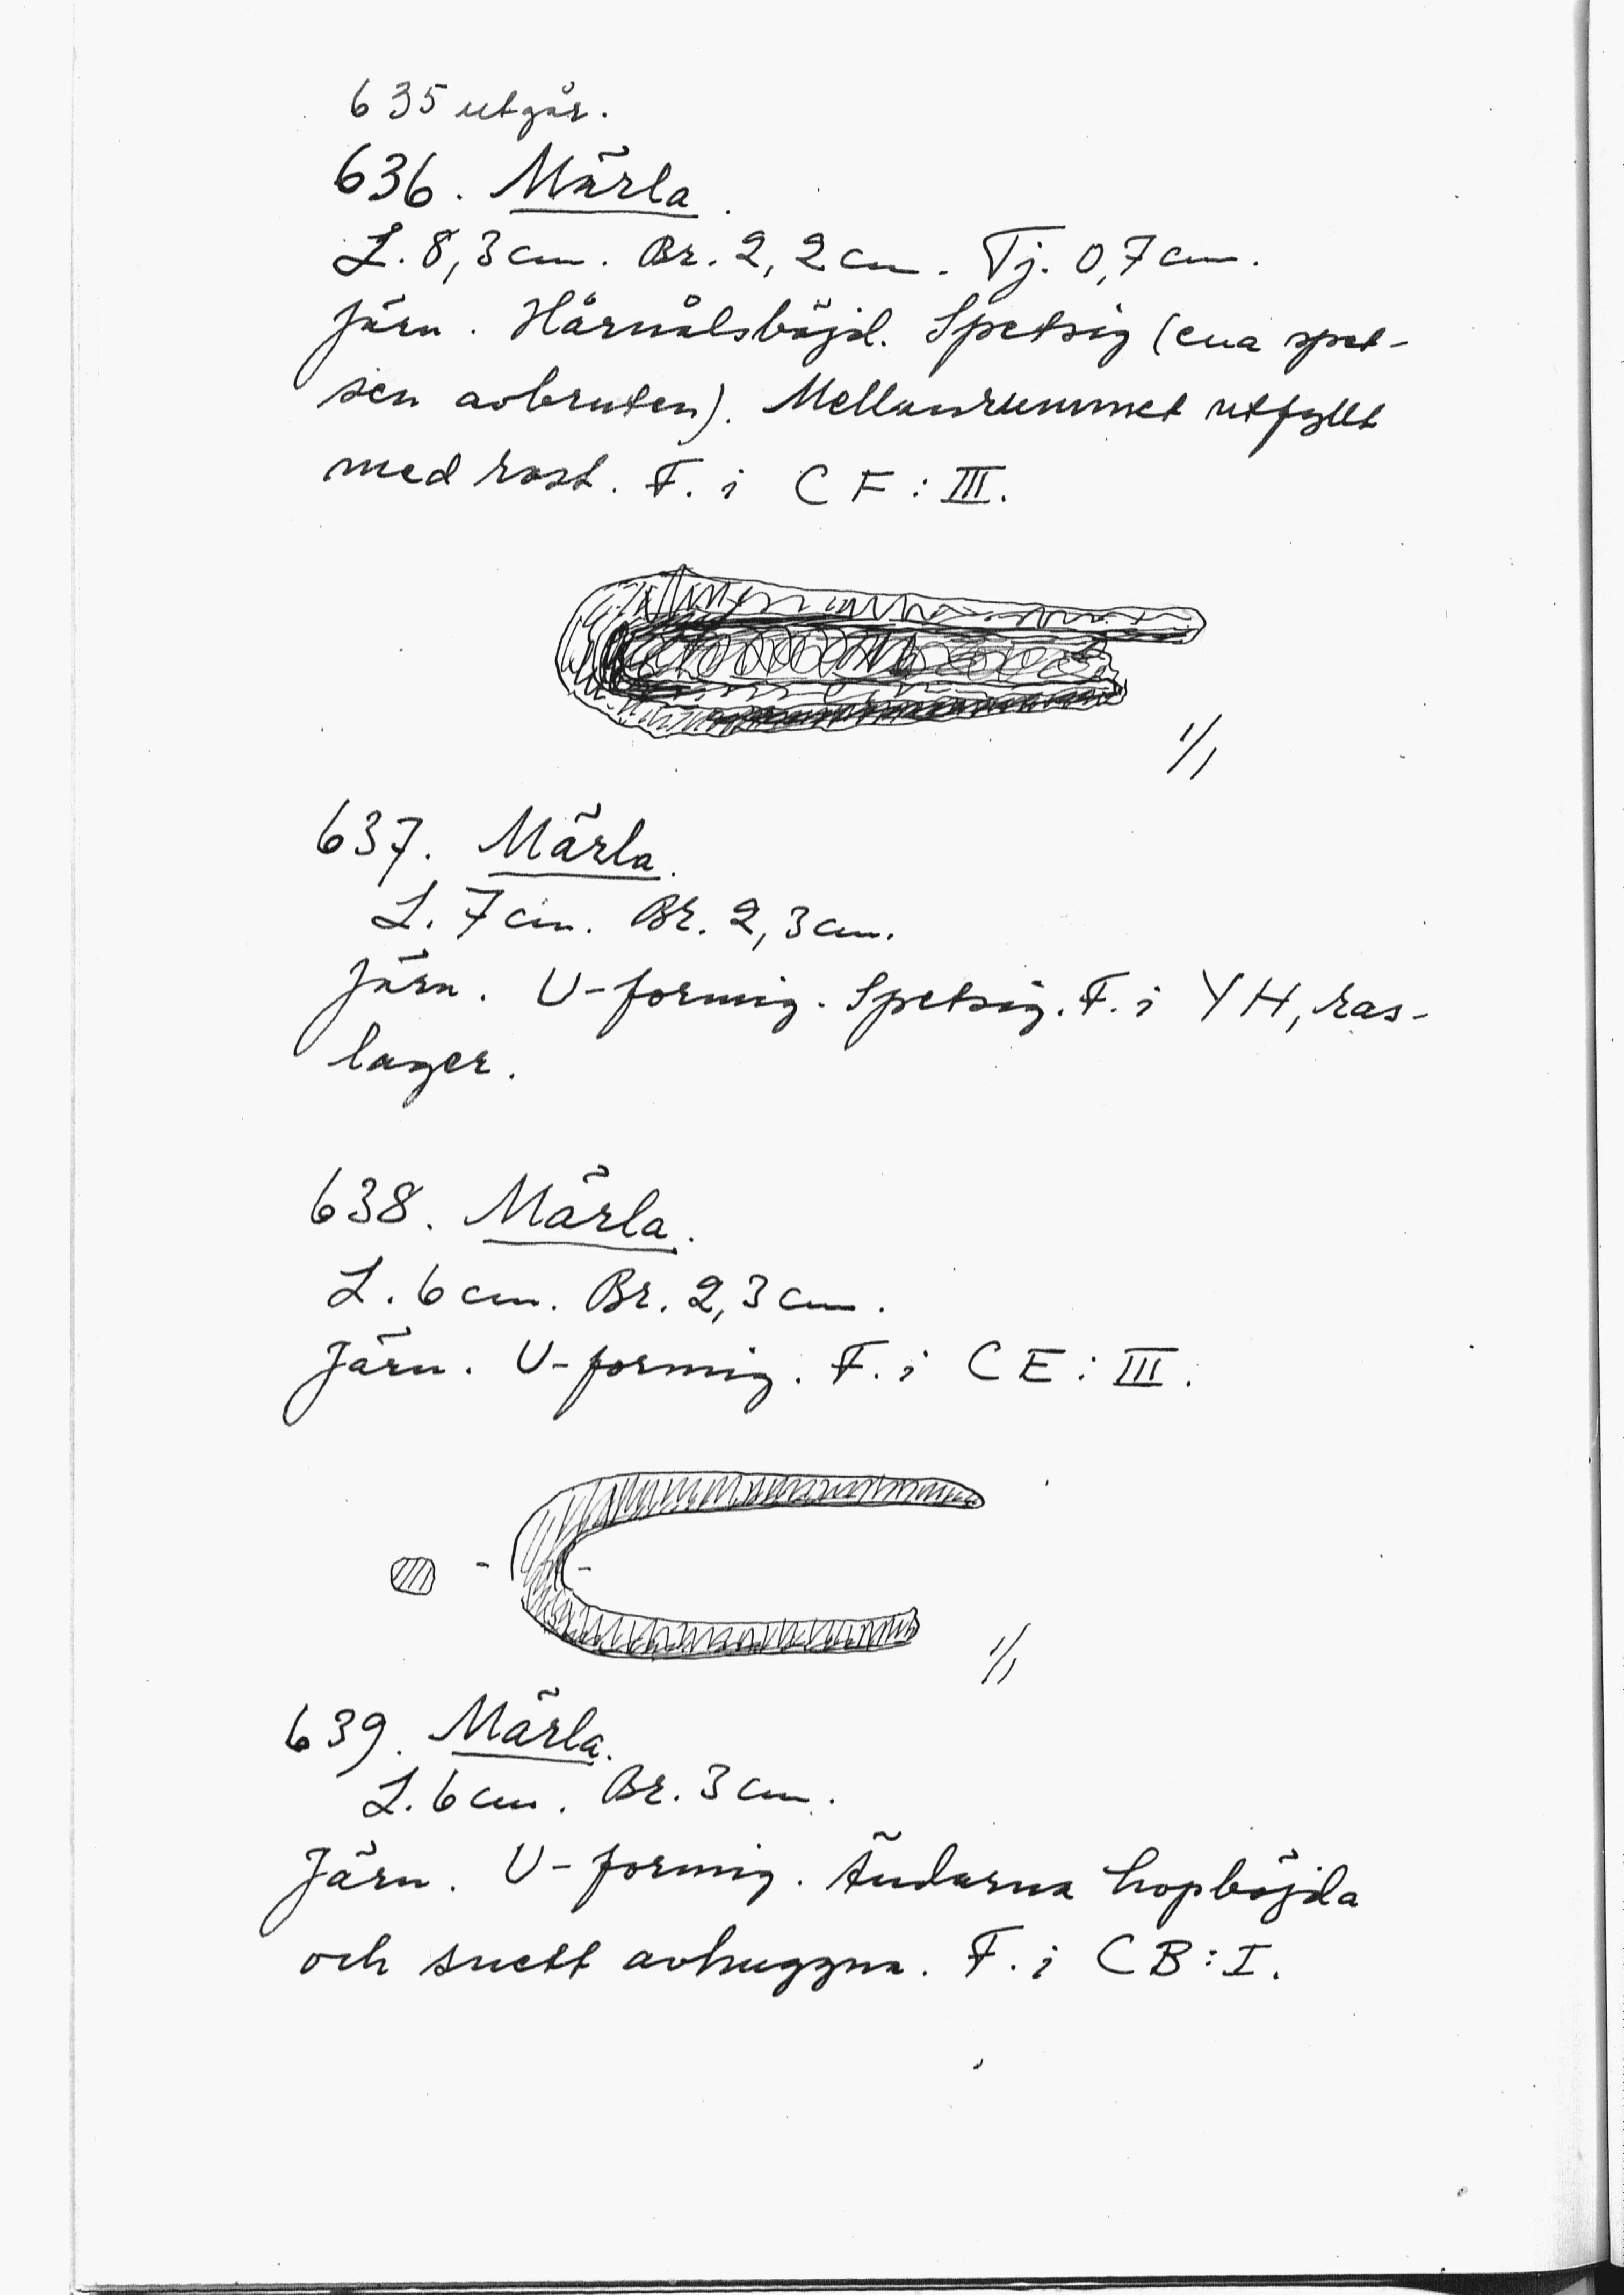 635 utgår.
636. Märla.
L. 8,3 cm. Br. 2,2 cm. Tj. 0,7 cm.
Järn. Hårnålsböjd. Spetsig (ena spet-
sen avbruten). Mellanrummet utfyllt
med rost. F. i CF:III.
1/1
637. Märla.
L. 7 cm. Br. 2,3 cm.
Järn. U-formig. Spetsig. F. i YH, ras-
lager.
638. Märla.
L. 6 cm. Br. 2,3 cm.
Järn. U-formig. F. i CE:III.
1/1
639. Märla.
L. 6 cm. Br. 3 cm.
Järn. U-formig. Ändarna hopböjda
och snett avhuggna. F. i CB:I.